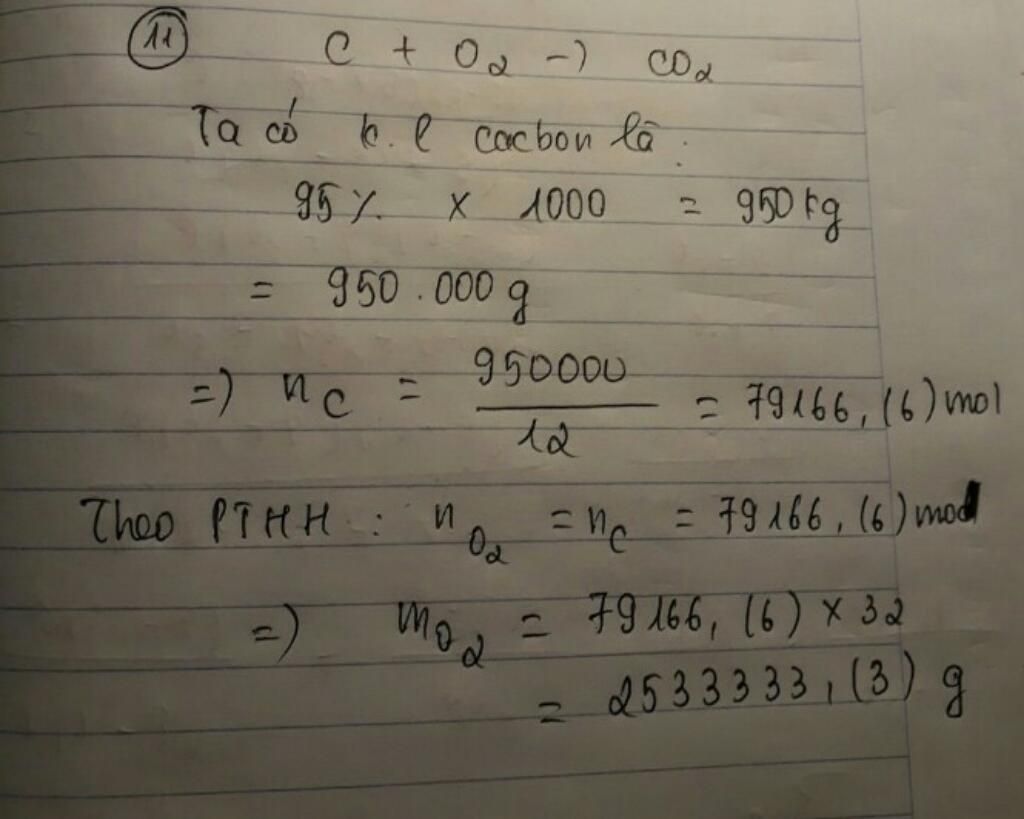 11 C + O₂ -) CO₂
Ta có k.l cacbon là:
95% x 1000 = 950 kg
= 950.000 g
=) n_C = 950000/12 = 79166,(6) mol
Theo PTHH : n_O₂ = n_C = 79166,(6) mol
=) m_O₂ = 79166,(6) x 32
= 2533333,(3) g